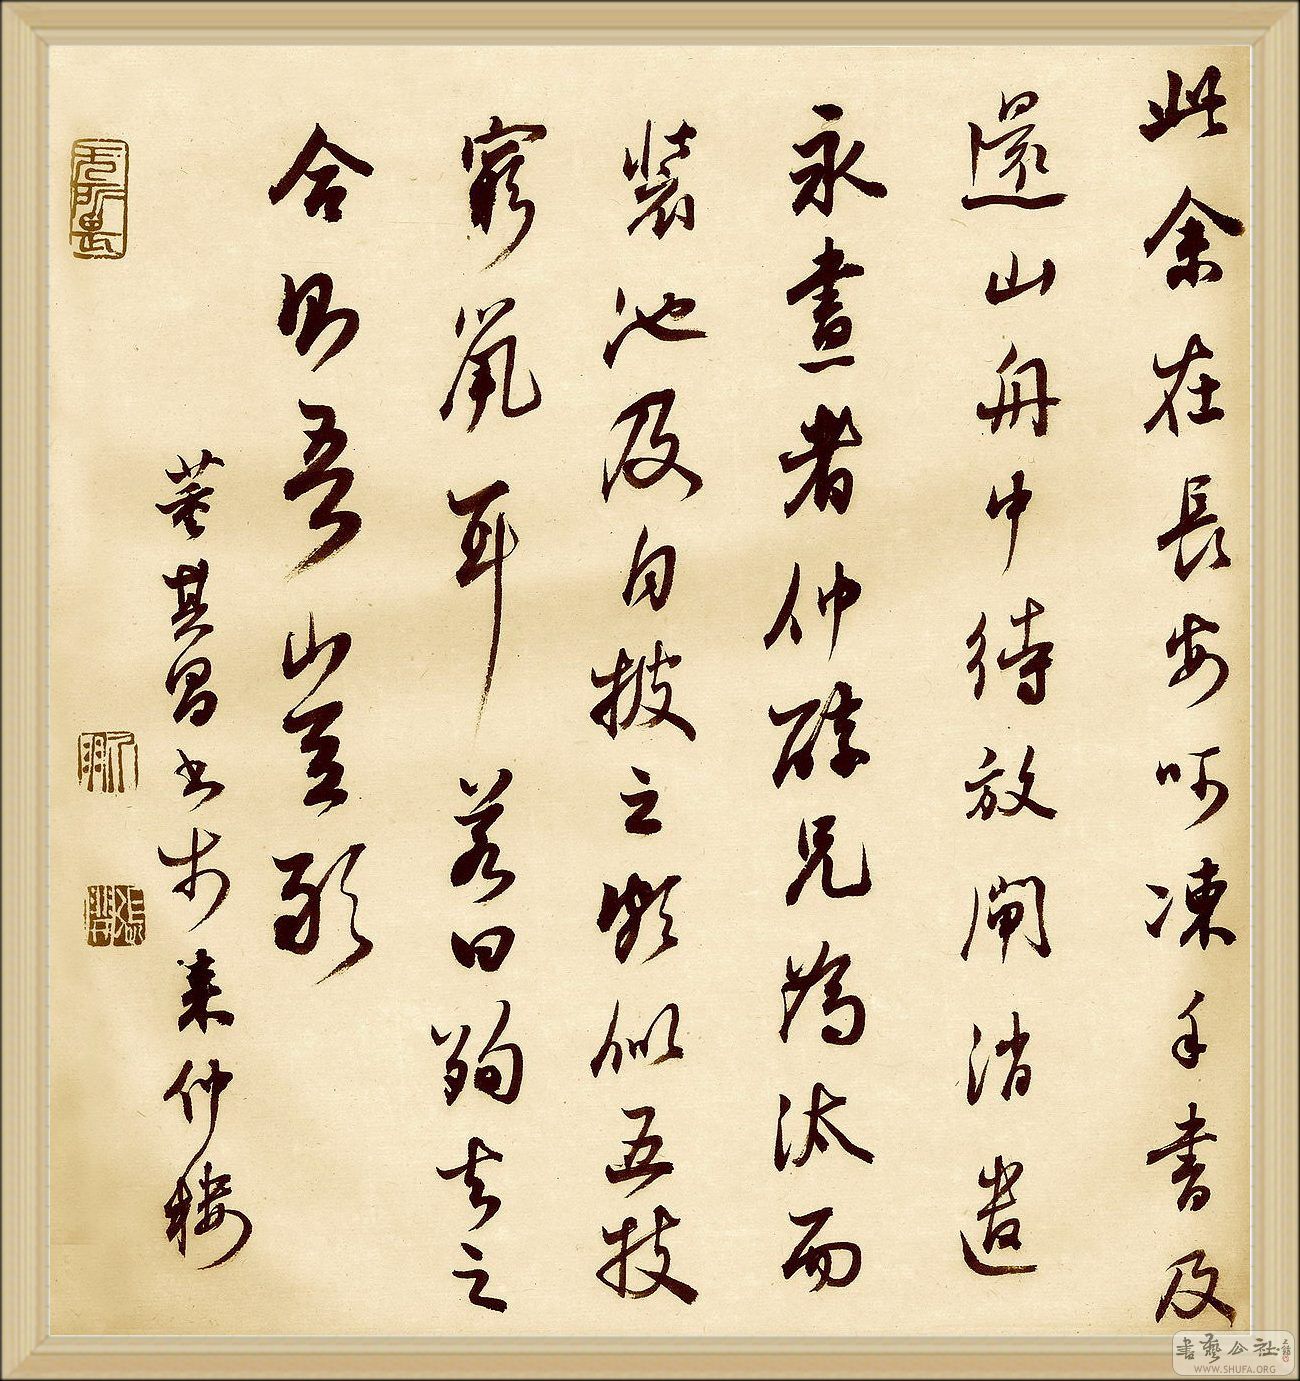 此余在長安呵凍手書及
還山舟中待放閘消遣
永晝者仲醇兄為汰而
裝池及自披之頗似五技
窮鼠耳若曰殉知之
合則吾山豈敢
董其昌書於來仲樓
書藝公社
WWW.SHUFA.ORG